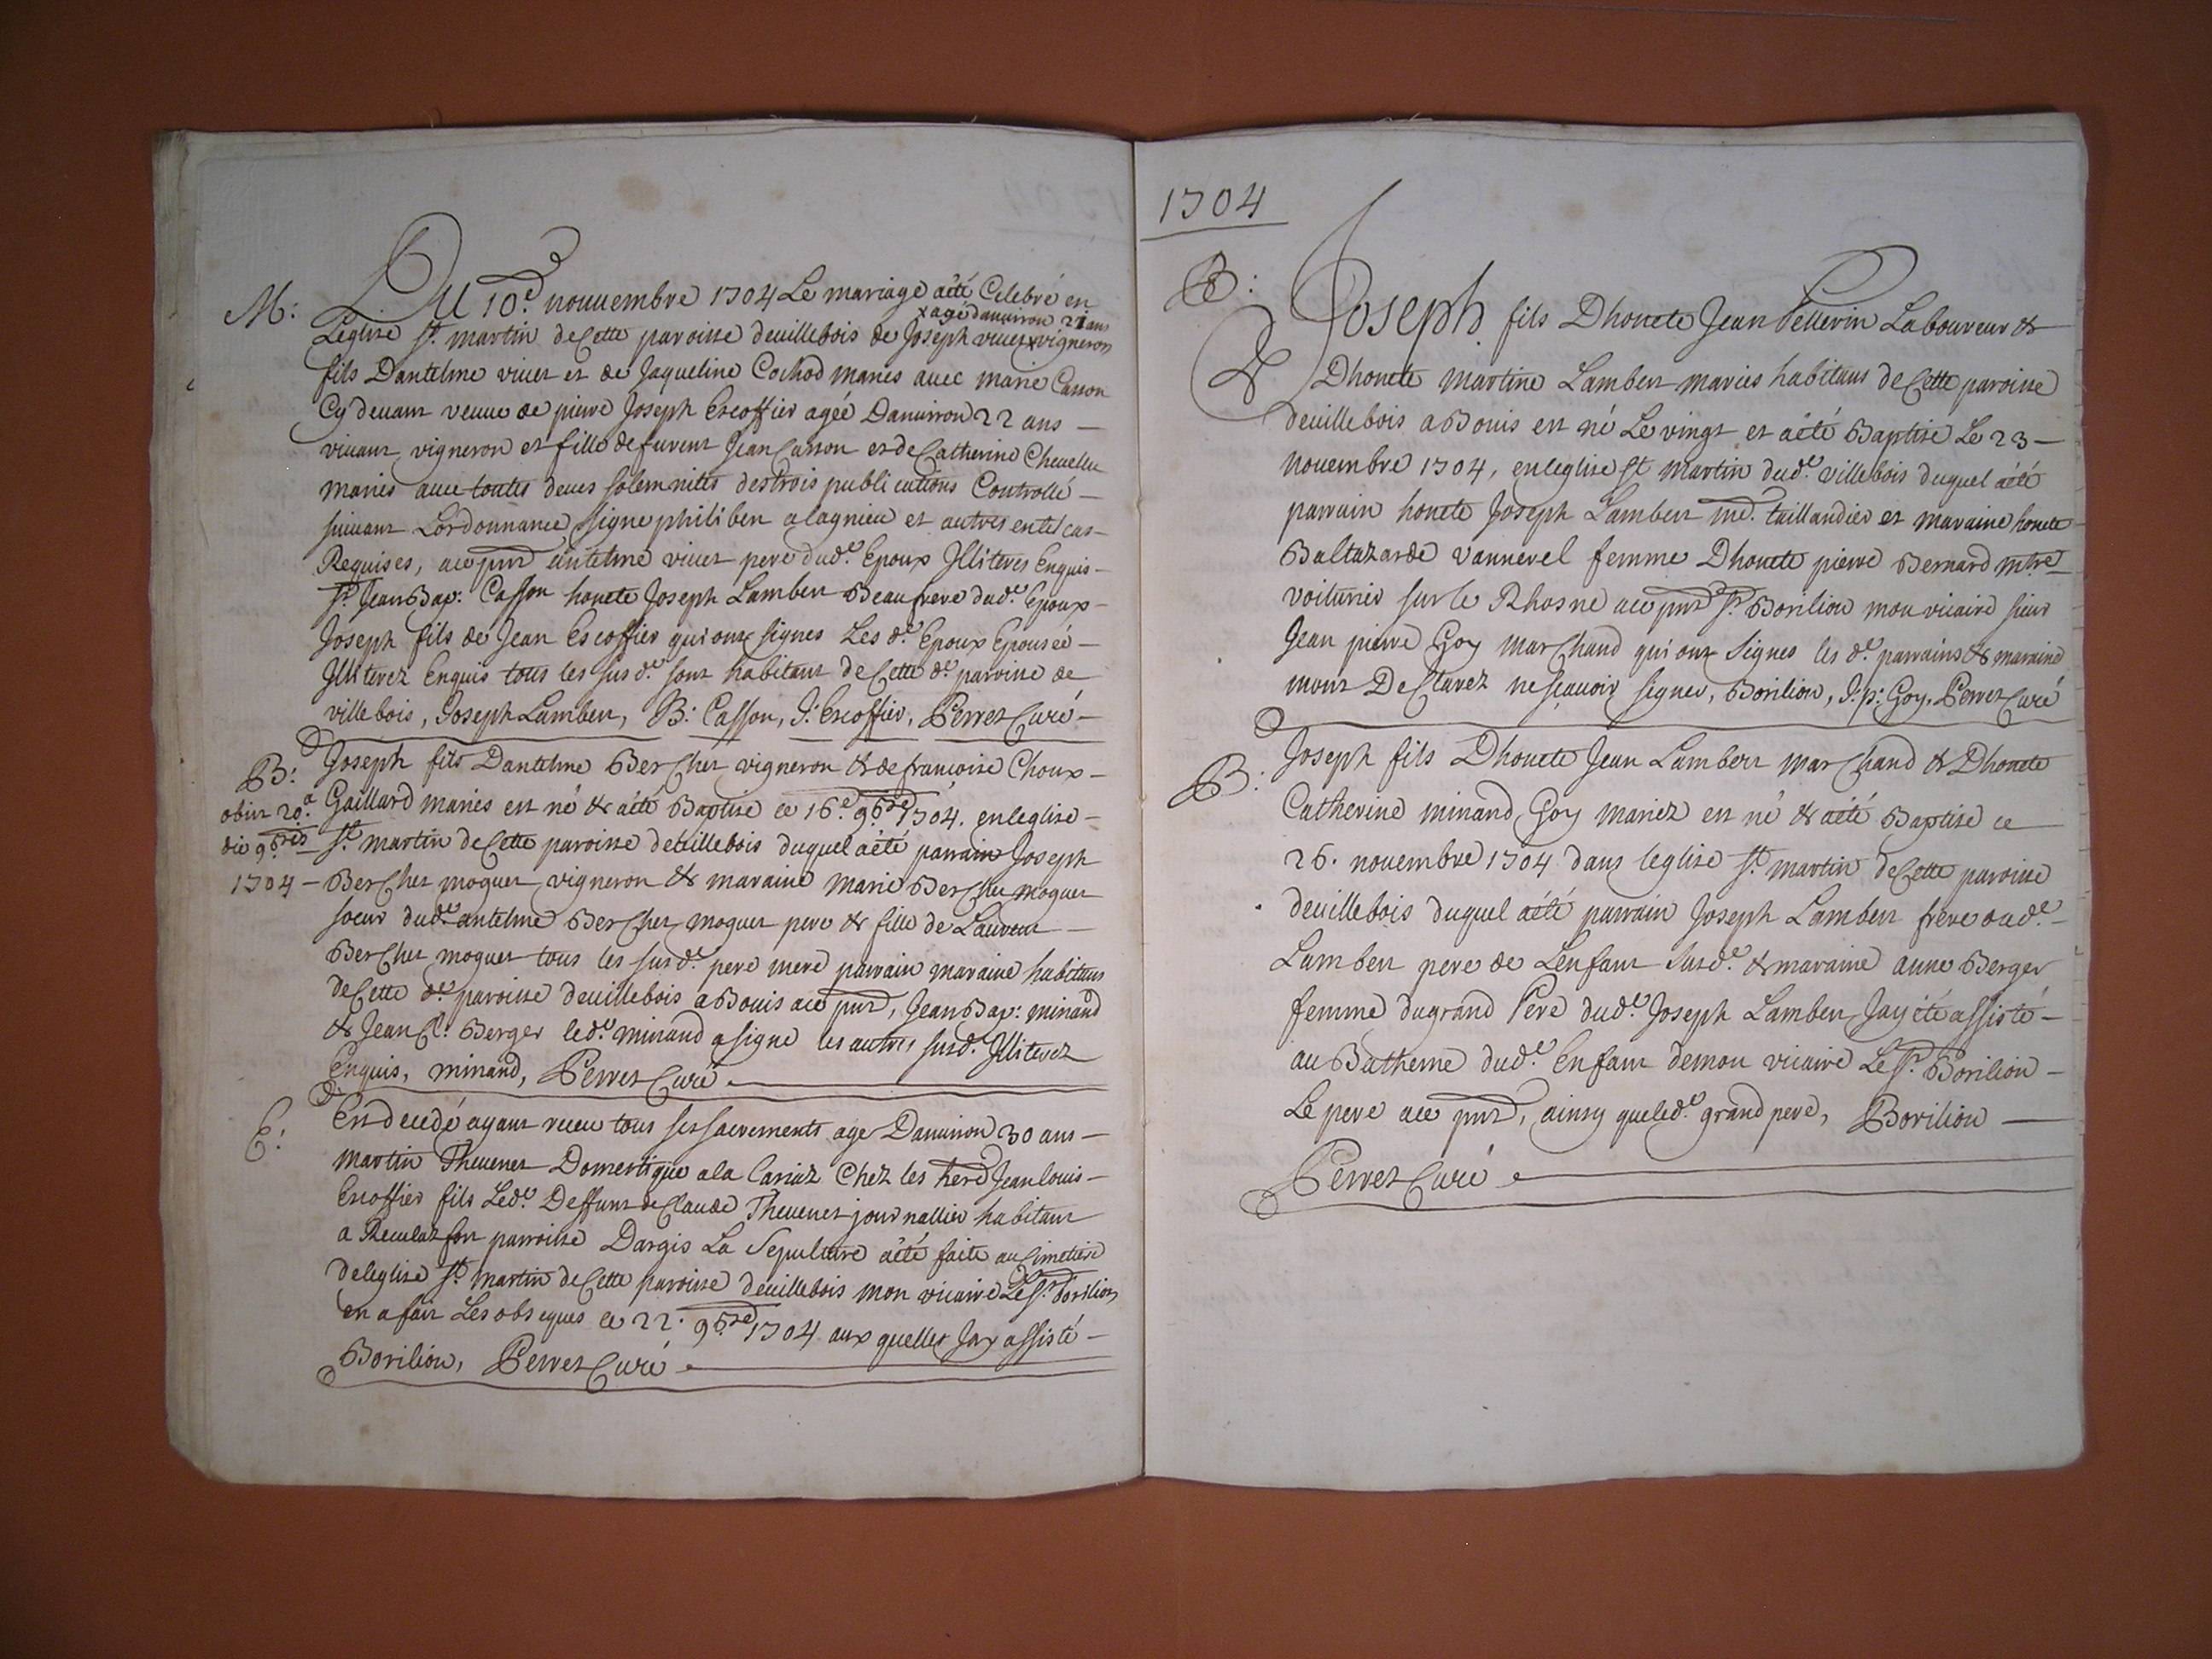 M: Du 10.e nouuembre 1704 Le mariage aété Celebré en
x agé danuiron 21 ans
Leglise St. martin deCette paroisse deuillebois de Joseph viuet x vigneron
fils Dantelme viuet et de Jaqueline Cochod mariés auec marie Casson
Cy deuant veuue de pierre Joseph Escoffier agée Danuiron 22 ans —
viuant vigneron et fille defurent Jean Casson et de Catherine Cheuellu
mariés auec toutes deues solemnités destrois publications Controllé —
suiuant Lordonnance signe philiben alagnieu et autres entel cas —
Requises, ace pnt antelme viuet pere dud.e Epoux Jlliteres Enquis —
Sr. Jean Bap: Casson honete Joseph Lambert Beaufrere dud.e Epoux —
Joseph fils de Jean Escoffier qui ont signes Les d.e Epoux Epousée —
Jlliterez Enquis tous les susd.e sont habitant de Cette d.e paroisse de
villebois, Joseph Lambert, B: Casson, J: Escoffier, Perret Curé —
B: Joseph fils Dantelme Berchet vigneron & de francoise Choux —
obiit 20.a Gaillard mariés est né & aété Baptise ce 16.e 9bre 1704. enleglise —
die 9bris St. martin deCette paroisse deuillebois duquel aété parrain Joseph
1704 — Berchet moguet vigneron & maraine marie Berchet moguet
soeur dud.e antelme Berchet moguet pere & fille de Laurent —
Berchet moguet tous les susd.e pere mere parrain maraine habitans
deCette d.e paroisse deuillebois a Bouis ace pnt, Jean Bap: minand
& Jean Cl. Berger led.e minand a signe les autres susd. Jlliterez
Enquis, minand, Perret Curé
E: Est decedé ayant receu tous ses sacrements age Danuiron 30 ans —
martin Theuenet Domestique ala Cariaz Chez les herd Jean louis —
Escoffier fils Led.e Deffunt de Claude Theuenet journallier habitant
a Reculaz fon parroisse Dargis La Sepulture aété faite au Cimetiere
deleglise St. martin de Cette paroisse deuillebois mon vicaire Le Sr. Borilion
en a fait Les obseques ce 22. 9bre 1704 aux quelles Jay assisté —
Borilion, Perret Curé
1704
B: Joseph fils Dhonete Jean Pellerin Laboureur &
& Dhonete martine Lambert mariés habitans de Cette paroisse
deuillebois a Bouis est né Le vingt et aété Baptisé Le 23 —
nouembre 1704, enleglise St martin dud.e villebois duquel aété
parrain honete Joseph Lambert md. taillandier et maraine honete
Baltazarde vannerel femme Dhonete pierre Bernard mtre
voiturier sur le Rhosne ace pnt Sr. Borilion mon vicaire sieur
Jean pierre Goy marchand qui ont signes les d.e parrains & maraine
mont Declarez ne sçauoir signer, Borilion, J: p: Goy, Perret Curé
B: Joseph fils Dhonete Jean Lambert marchand & Dhonete
Catherine minand Goy mariez est né & aété Baptisé ce
26. nouembre 1704 dans leglise St. martin de Cette paroisse
deuillebois duquel aété parrain Joseph Lambert frere dud.e —
Lambert pere de Lenfant susd.e & maraine anne Berger
femme dugrand Pere dud.e Joseph Lambert Jay été assisté —
au Batheme dud.e Enfant demon vicaire Le Sr. Borilion —
Le pere ace pnt, ainsy queled.e grand pere, Borilion —
Perret Curé